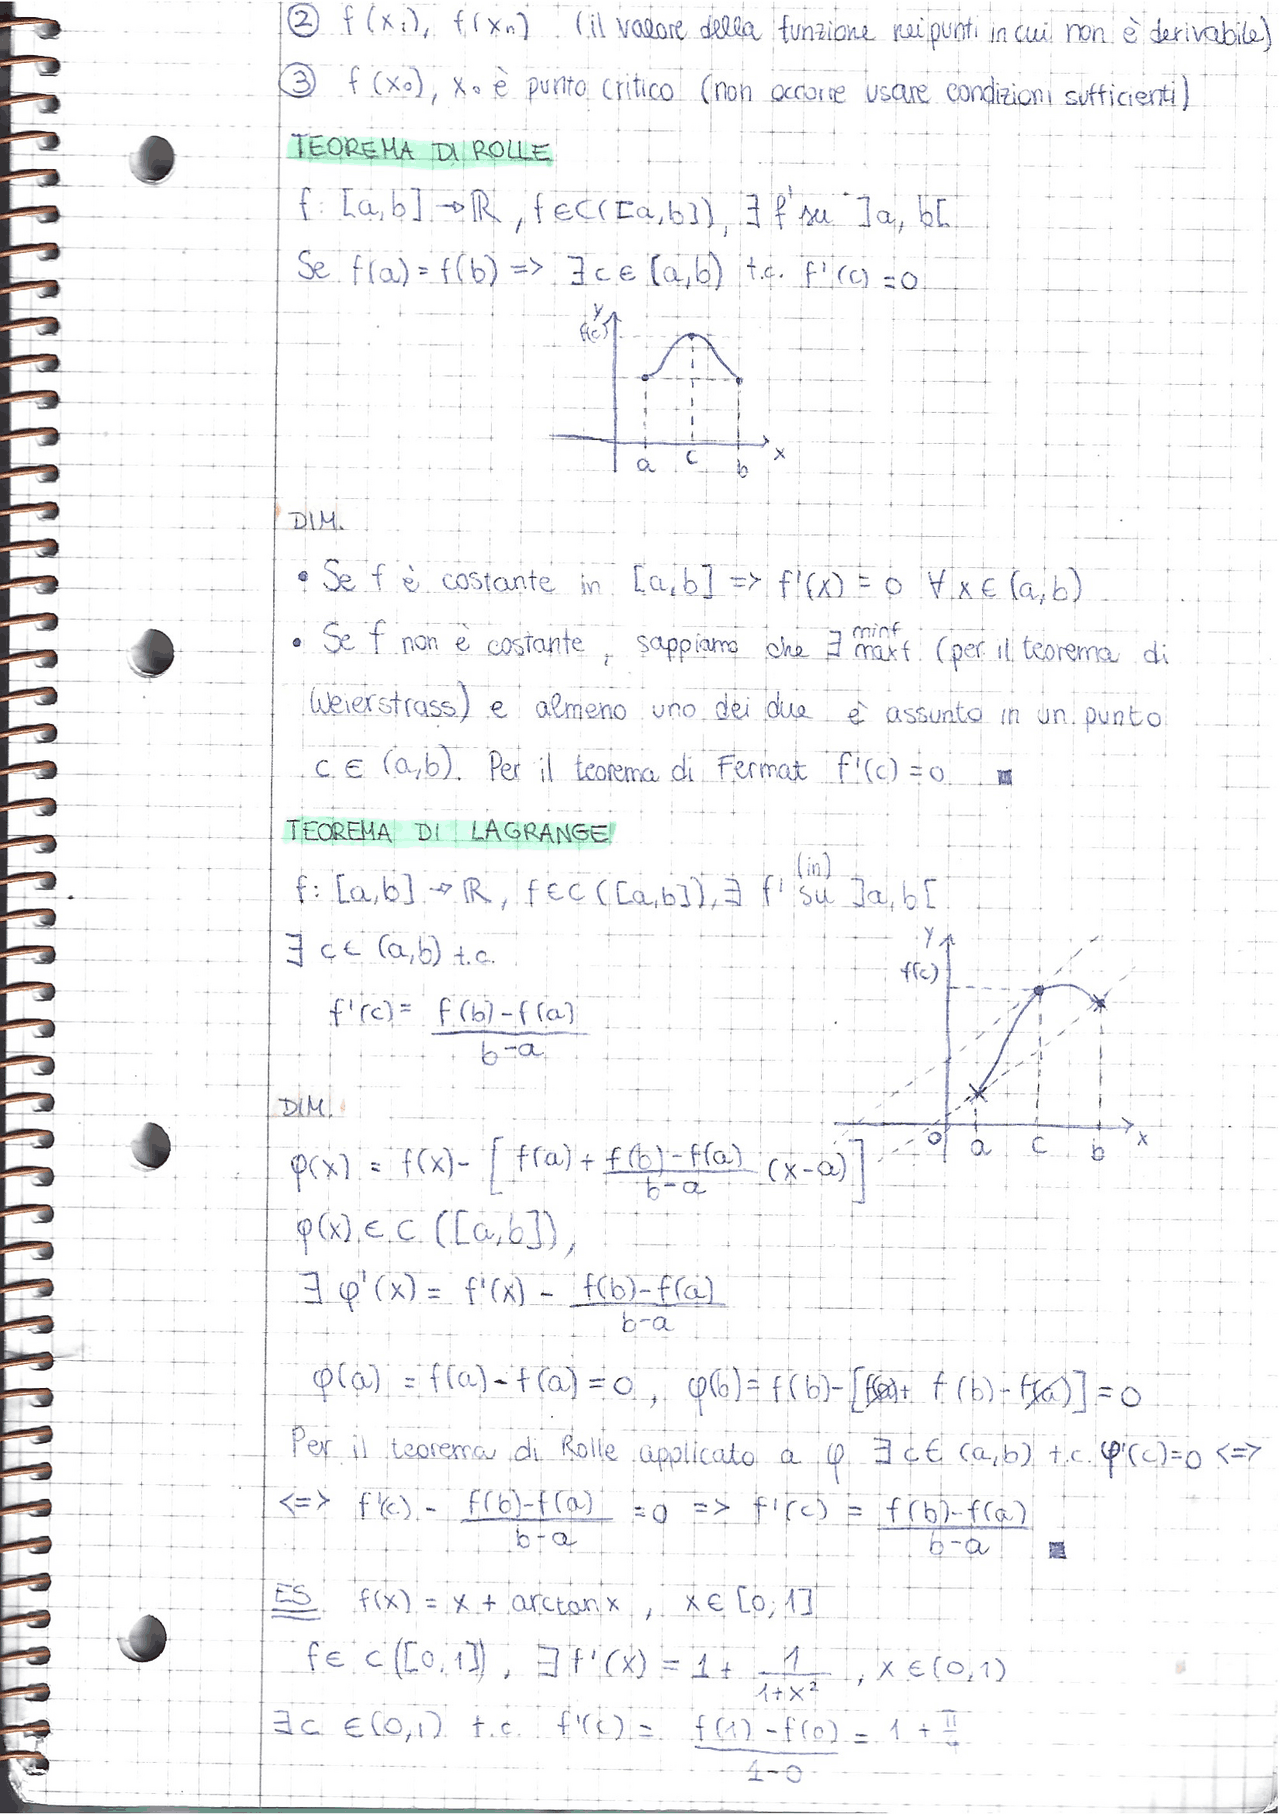 ② f(x₁), f(xₙ) (il valore della funzione nei punti in cui non è derivabile)
③ f(x₀), x₀ è punto critico (non occorre usare condizioni sufficienti)
TEOREMA DI ROLLE
f: [a,b] → ℝ, f∈C([a,b]), ∃ f' su ]a, b[
Se f(a) = f(b) => ∃ c ∈ (a,b) t.c. f'(c) = 0
y
f(c)
a c b x
DIM.
• Se f è costante in [a,b] => f'(x) = 0 ∀ x ∈ (a,b)
• Se f non è costante, sappiamo che ∃ minf maxf (per il teorema di
Weierstrass) e almeno uno dei due è assunto in un punto
c ∈ (a,b). Per il teorema di Fermat f'(c) = 0 ■
TEOREMA DI LAGRANGE
f: [a,b] → ℝ, f∈C([a,b]), ∃ f' su (in) ]a,b[
∃ c ∈ (a,b) t.c.
f'(c) = f(b)-f(a) / b-a
y
f(c)
0 a c b x
DIM.
φ(x) = f(x) - [f(a) + f(b)-f(a) / b-a (x-a)]
φ(x) ∈ C([a,b]),
∃ φ'(x) = f'(x) - f(b)-f(a) / b-a
φ(a) = f(a) - f(a) = 0, φ(b) = f(b) - [f(a) + f(b) - f(a)] = 0
Per il teorema di Rolle applicato a φ ∃ c ∈ (a,b) t.c. φ'(c)=0 <=>
<=> f'(c) - f(b)-f(a) / b-a = 0 => f'(c) = f(b)-f(a) / b-a ■
ES f(x) = x + arctan x, x ∈ [0,1]
f ∈ C([0,1]), ∃ f'(x) = 1 + 1 / 1+x², x ∈ (0,1)
∃ c ∈ (0,1) t.c. f'(c) = f(1) - f(0) / 1-0 = 1 + π